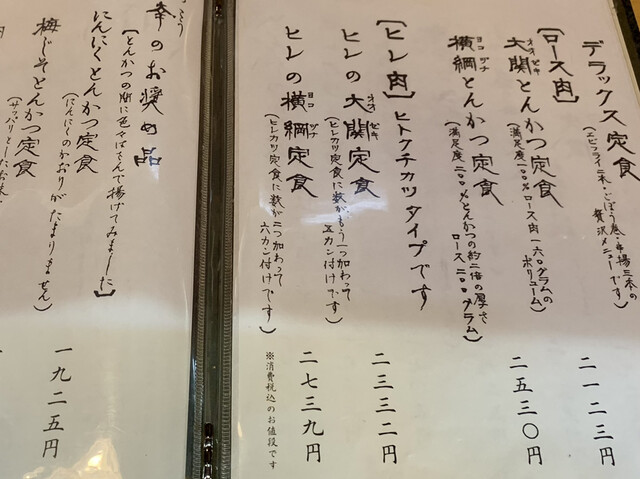 デラックス定食
(エビフライ二本・ごぼう巻・串揚三本の
贅沢メニューです)
二一二三円
【ロース肉】
大関とんかつ定食
オオゼキ
(満足度一〇〇%ロース肉一六〇グラムの
ボリューム)
二五三〇円
横綱とんかつ定食
ヨコヅナ
(満足度二〇〇%とんかつの約二倍の厚さ
ロース二〇〇グラム)
【ヒレ肉】ヒトクチカツタイプです
ヒレの大関定食
オオゼキ
(ヒレカツ定食に数がもう一つ加わって
五カン付けです)
二三三二円
ヒレの横綱定食
ヨコヅナ
(ヒレカツ定食に数が二つ加わって
六カン付けです)
二七三九円
※消費税込のお値段です
幸のお奨め品
【とんかつの
で揚げてみました】
にんにくとんかつ定食
(にんにくのかおりがたまりません)
一九二五円
梅じそとんかつ定食
(サッパリとした
円